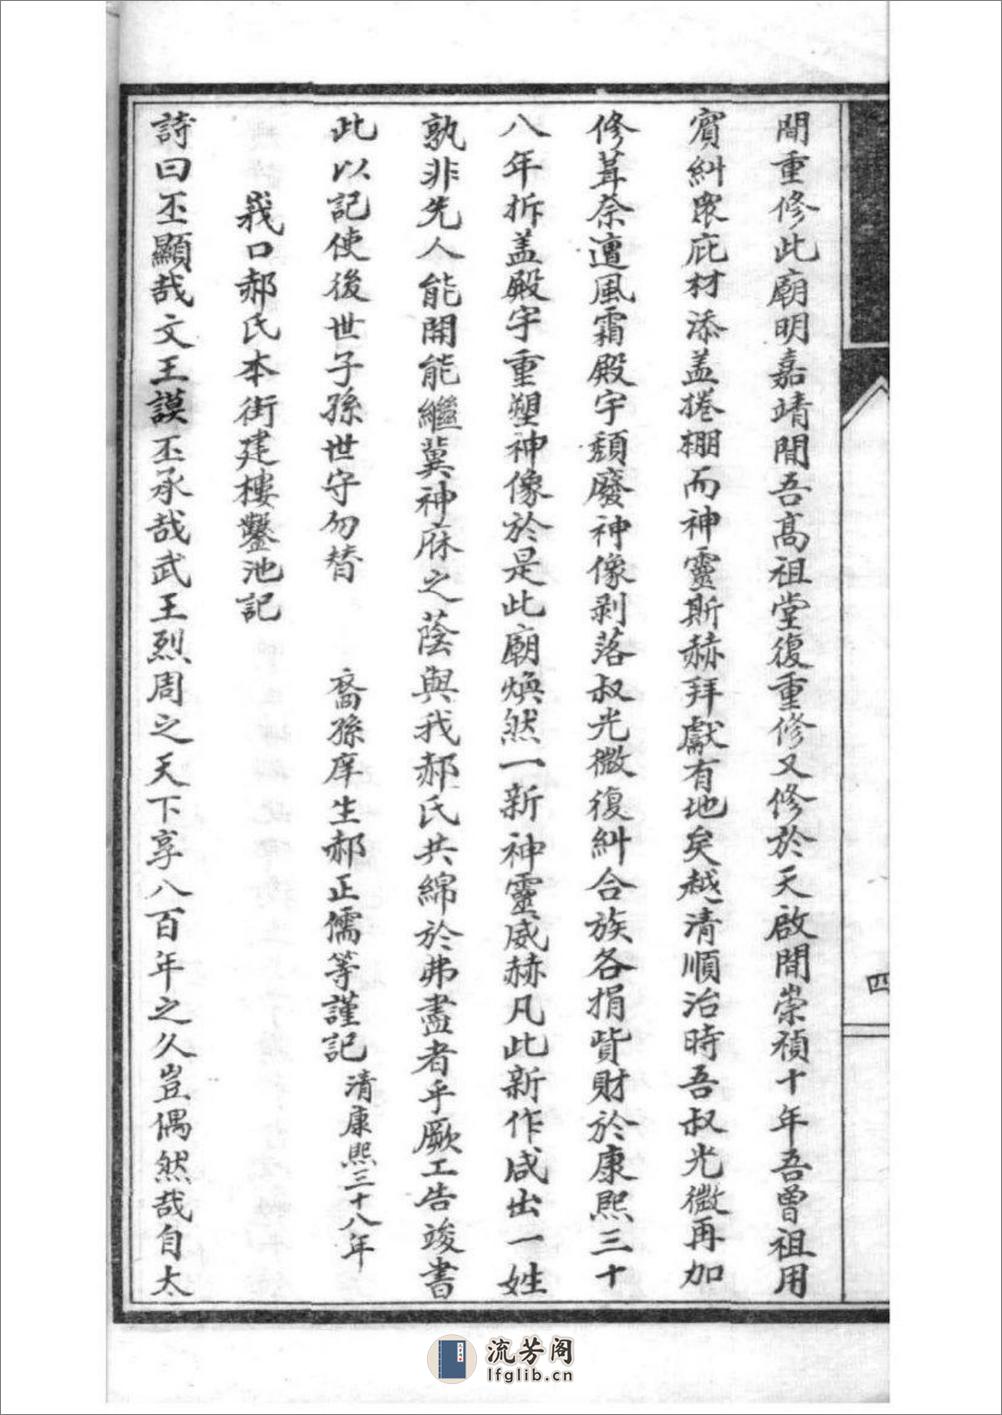 間重修此廟明嘉靖間吾高祖堂復重修又修於天啟間崇禎十年吾曾祖用
賓糾眾庇材添盖捲棚而神靈斯赫拜獻有地矣越清順治時吾叔光微再加
修葺奈遭風霜殿宇頹廢神像剥落叔光微復糾合族各捐貲財於康熙三十
八年拆盖殿宇重塑神像於是此廟煥然一新神靈威赫凡此新作咸出一姓
孰非先人能開能繼冀神庥之蔭與我郝氏共綿於弗盡者乎厥工告竣書
此以記使後世子孫世守勿替 裔孫庠生郝正儒等謹記 清康熙三十八年
峩口郝氏本街建樓鑿池記
詩曰丕顯哉文王謨丕承哉武王烈周之天下享八百年之久豈偶然哉自太
四
流芳阁
lfglib.cn